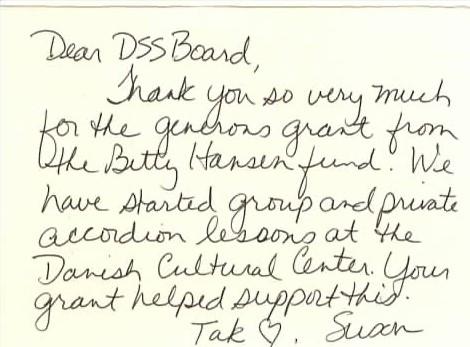 Dear DSS Board,
Thank you so very much
for the generous grant from
the Betty Hansen fund. We
have started group and private
accordion lessons at the
Danish Cultural Center. Your
grant helped support this.
Tak ♡. Susan